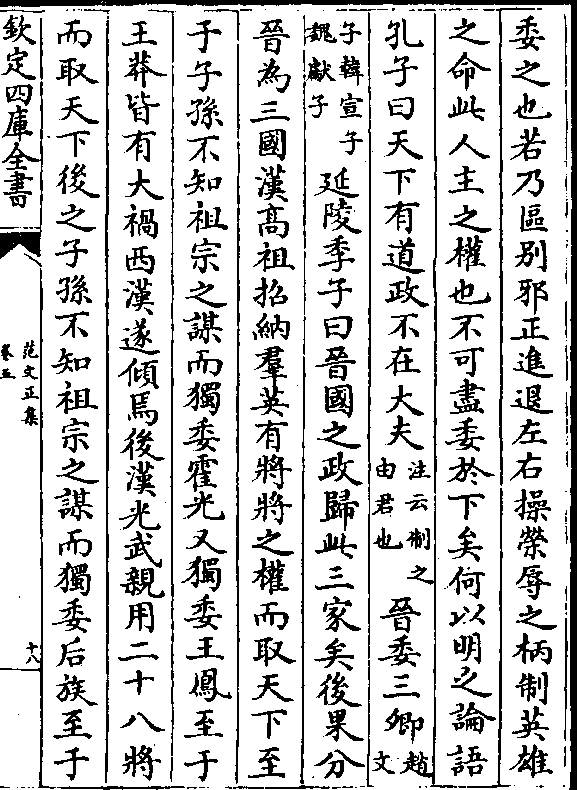 委之也若乃區别邪正進退左右操榮辱之柄制英雄
之命此人主之權也不可盡委於下矣何以明之論語
孔子曰天下有道政不在大夫注云制之由君也晉委三卿趙文
子韓宣子魏獻子延陵季子曰晉國之政歸此三家矣後果分
晉為三國漢髙祖招納羣英有將將之權而取天下至
于子孫不知祖宗之謀而獨委霍光又獨委王鳳至于
王莽皆有大禍西漢遂傾焉後漢光武親用二十八將
而取天下後之子孫不知祖宗之謀而獨委后族至于
欽定四庫全書
范文正集
卷五
十八